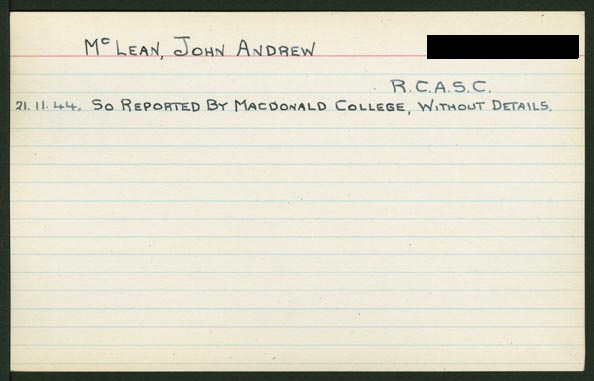 Mc LEAN, JOHN ANDREW
R.C.A.S.C.
21.11.44. SO REPORTED BY MACDONALD COLLEGE, WITHOUT DETAILS.